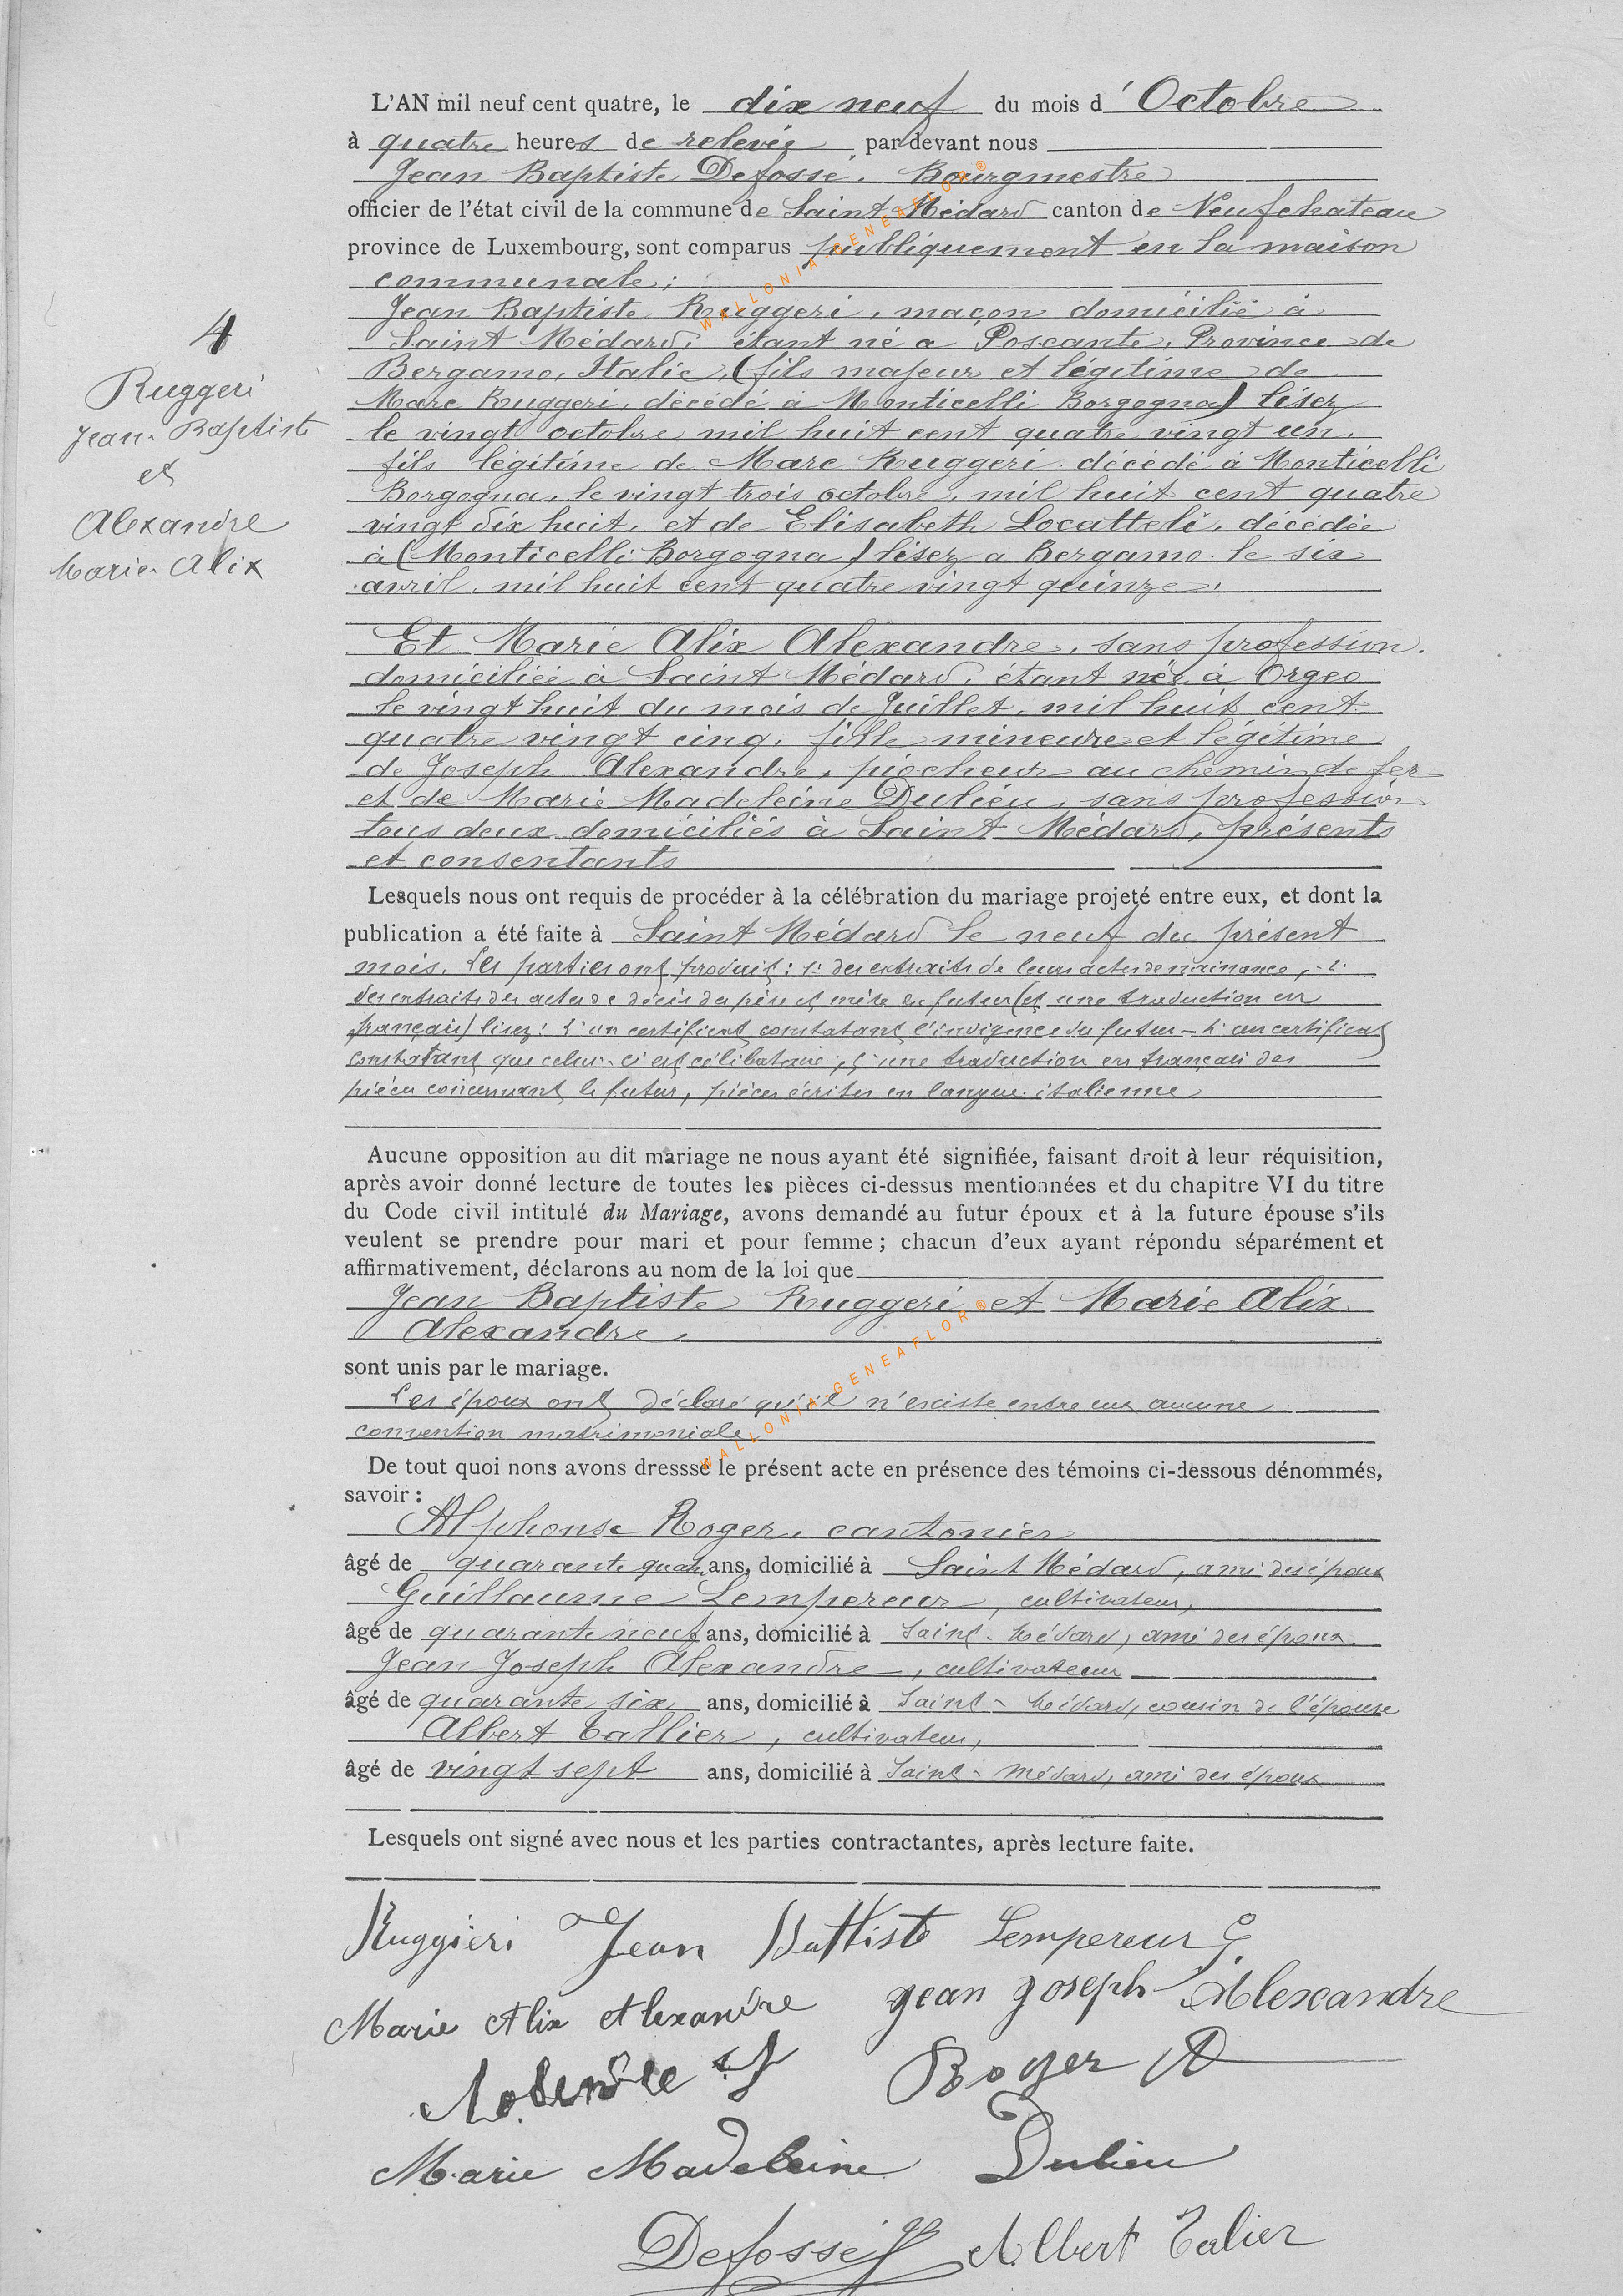 L'AN mil neuf cent quatre, le dix neuf du mois d'Octobre
à quatre heures de relevée par devant nous
Jean Baptiste Defossé, Bourgmestre
officier de l'état civil de la commune de Saint Médard canton de Neufchateau
province de Luxembourg, sont comparus publiquement en la maison
communale;
Jean Baptiste Ruggeri, maçon domicilié à
Saint Médard, étant né à Poscante, Province de
Bergamo, Italie, (fils majeur et légitime de
Marc Ruggeri, décédé à Monticelli Borgogna) lisez
le vingt octobre mil huit cent quatre vingt un,
fils légitime de Marc Ruggeri décédé à Monticelli
Borgogna, le vingt trois octobre, mil huit cent quatre
vingt dix huit, et de Elisabeth Locatteli, décédée
à (Monticelli Borgogna) lisez a Bergamo le six
avril, mil huit cent quatre vingt quinze.
4
Ruggeri
Jean-Baptiste
et
Alexandre
Marie-Alix
Et Marie Alix Alexandre, sans profession.
domiciliée à Saint Médard, étant née à Orgeo
le vingt huit du mois de Juillet, mil huit cent
quatre vingt cinq, fille mineure et légitime
de Joseph Alexandre, piocheur au chemin de fer
et de Marie Madeleine Dulieu, sans profession
tous deux domiciliés à Saint Médard, présents
et consentants
Lesquels nous ont requis de procéder à la célébration du mariage projeté entre eux, et dont la
publication a été faite à Saint Médard le neuf du présent
mois. Les parties ont produit: 1° des extraits de leurs actes de naissance, 2°
des extraits des actes de décès des père et mère du futur (et une traduction en
français) lisez: 3° un certificat constatant l'indigence du futur - 4° un certificat
constatant que celui-ci est célibataire, 5° une traduction en français des
pièces concernant le futur, pièces écrites en langue italienne
Aucune opposition au dit mariage ne nous ayant été signifiée, faisant droit à leur réquisition,
après avoir donné lecture de toutes les pièces ci-dessus mentionnées et du chapitre VI du titre
du Code civil intitulé du Mariage, avons demandé au futur époux et à la future épouse s'ils
veulent se prendre pour mari et pour femme; chacun d'eux ayant répondu séparément et
affirmativement, déclarons au nom de la loi que
Jean Baptiste Ruggeri et Marie Alix
Alexandre,
sont unis par le mariage.
Les époux ont déclaré qu'il n'existe entre eux aucune
convention matrimoniale
De tout quoi nons avons dressse le présent acte en présence des témoins ci-dessous dénommés,
savoir:
Alphonse Roger, cantonier
âgé de quarante quatre ans, domicilié à Saint Médard, ami des époux
Guillaume Lempereur, cultivateur,
âgé de quarante neuf ans, domicilié à Saint-Médard, ami des époux
Jean Joseph Alexandre, cultivateur
âgé de quarante six ans, domicilié à Saint-Médard, cousin de l'épouse
Albert Tallier, cultivateur,
âgé de vingt sept ans, domicilié à Saint-Médard, ami des époux
Lesquels ont signé avec nous et les parties contractantes, après lecture faite.
Ruggieri Jean Battiste Lempereur G.
Marie Alix Alexandre Jean Joseph Alexandre
Roger A
Marie Madeleine Dulieu
Defossé Albert Talier
WALLONIA-GENEAFLOR®
WALLONIA-GENEAFLOR®